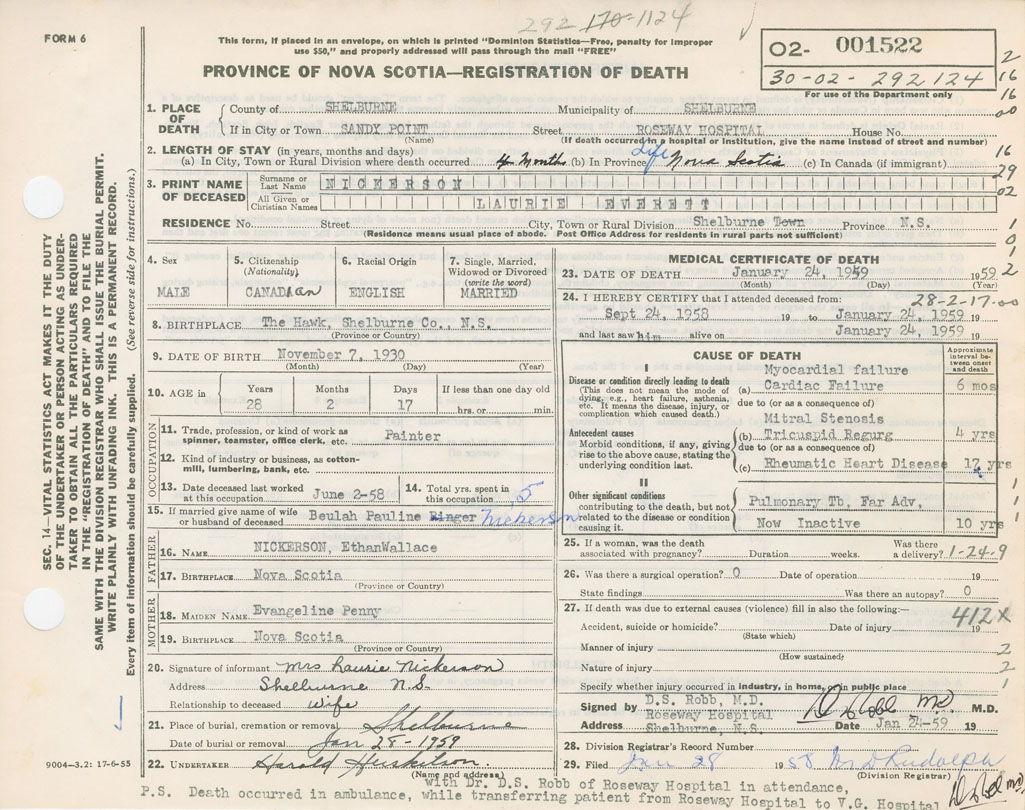 292 170-1124
FORM 6
This form, if placed in an envelope, on which is printed "Dominion Statistics—Free, penalty for improper
use $50," and properly addressed will pass through the mail "FREE"
PROVINCE OF NOVA SCOTIA—REGISTRATION OF DEATH
O2- 001522
30-02- 292 124
For use of the Department only
2
16
16
00
16
29
02
1
0
1
2
1. PLACE OF DEATH County of SHELBURNE Municipality of SHELBURNE
If in City or Town SANDY POINT Street ROSEWAY HOSPITAL House No.
(Name) (If death occurred in a hospital or Institution, give the name instead of street and number)
2. LENGTH OF STAY (in years, months and days)
(a) In City, Town or Rural Division where death occurred 4 Months (b) In Province Life Nova Scotia (c) In Canada (if immigrant)
3. PRINT NAME OF DECEASED Surname or Last Name NICKERSON
All Given or Christian Names LAURIE EVERETT
RESIDENCE No. Street City, Town or Rural Division Shelburne Town Province N.S.
(Residence means usual place of abode. Post Office Address for residents in rural parts not sufficient)
4. Sex
MALE
5. Citizenship
(Nationality)
CANADIan
6. Racial Origin
ENGLISH
7. Single, Married,
Widowed or Divorced
(write the word)
MARRIED
8. BIRTHPLACE The Hawk, Shelburne Co., N.S.
(Province or Country)
9. DATE OF BIRTH November 7, 1930
(Month) (Day) (Year)
10. AGE in Years Months Days If less than one day old
28 2 17 hrs. or min.
OCCUPATION
11. Trade, profession, or kind of work as
spinner, teamster, office clerk, etc. Painter
12. Kind of industry or business, as cotton-
mill, lumbering, bank, etc.
13. Date deceased last worked
at this occupation June 2-58
14. Total yrs. spent in
this occupation 5
15. If married give name of wife
or husband of deceased Beulah Pauline Ringer Nickerson
FATHER
16. NAME NICKERSON, EthanWallace
17. BIRTHPLACE Nova Scotia
(Province or Country)
MOTHER
18. MAIDEN NAME Evangeline Penny
19. BIRTHPLACE Nova Scotia
(Province or Country)
20. Signature of informant Mrs Laurie Nickerson
Address Shelburne N.S.
Relationship to deceased Wife
21. Place of burial, cremation or removal Shelburne
Date of burial or removal Jan 28 - 1959
22. UNDERTAKER Harold
(Name and address)
MEDICAL CERTIFICATE OF DEATH
23. DATE OF DEATH January 24, 1959 1959
(Month) (Day) (Year)
24. I HEREBY CERTIFY that I attended deceased from: 28-2-17-00
Sept 24, 1958 19 to January 24, 1959 19
and last saw him alive on January 24, 1959 19
CAUSE OF DEATH
Approximate
interval be-
tween onset
and death
I
Disease or condition directly leading to death
(This does not mean the mode of
dying, e.g., heart failure, asthenia,
etc. It means the disease, injury, or
complication which caused death.)
Myocardial failure
(a) Cardiac Failure 6 mos
due to (or as a consequence of)
Antecedent causes
Morbid conditions, if any, giving
rise to the above cause, stating the
underlying condition last.
Mitral Stenosis
(b) Tricuspid Regurg 4 yrs
due to (or as a consequence of)
(c) Rheumatic Heart Disease 17 yrs
II
Other significant conditions
contributing to the death, but not
related to the disease or condition
causing it.
Pulmonary Tb, Far Adv,
Now Inactive 10 yrs
25. If a woman, was the death
associated with pregnancy? Duration weeks. Was there
a delivery? 1-24-9
26. Was there a surgical operation? 0 Date of operation 19
State findings Was there an autopsy? 0
27. If death was due to external causes (violence) fill in also the following:—
412x
Accident, suicide or homicide? Date of injury 19
(State which)
Manner of injury 2
(How sustained)
Nature of injury 2
Specify whether injury occurred in industry, in home, or in public place 1
Signed by D.S. Robb, M.D. D S Robb MD. M.D.
Roseway Hospital
Address Shelburne, N.S. Date Jan 24-59 19
28. Division Registrar's Record Number
29. Filed Jan 28 19 Rudolph
(Division Registrar)
with Dr. D.S. Robb of Roseway Hospital in attendance,
P.S. Death occurred in ambulance, while transferring patient from Roseway Hospital to V.G. Hospital DS Robb MD
SEC. 14—VITAL STATISTICS ACT MAKES IT THE DUTY
OF THE UNDERTAKER OR PERSON ACTING AS UNDER-
TAKER TO OBTAIN ALL THE PARTICULARS REQUIRED
IN THE "REGISTRATION OF DEATH" AND TO FILE THE
SAME WITH THE DIVISION REGISTRAR WHO SHALL ISSUE THE BURIAL PERMIT.
WRITE PLAINLY WITH UNFADING INK. THIS IS A PERMANENT RECORD.
Every item of information should be carefully supplied. (See reverse side for instructions.)
9004—3.2: 17-6-55